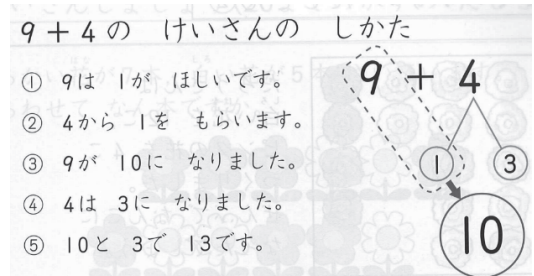 9＋4の けいさんの しかた
① 9は 1が ほしいです。
② 4から 1を もらいます。
③ 9が 10に なりました。
④ 4は 3に なりました。
⑤ 10と 3で 13です。
9 + 4
1 3
10